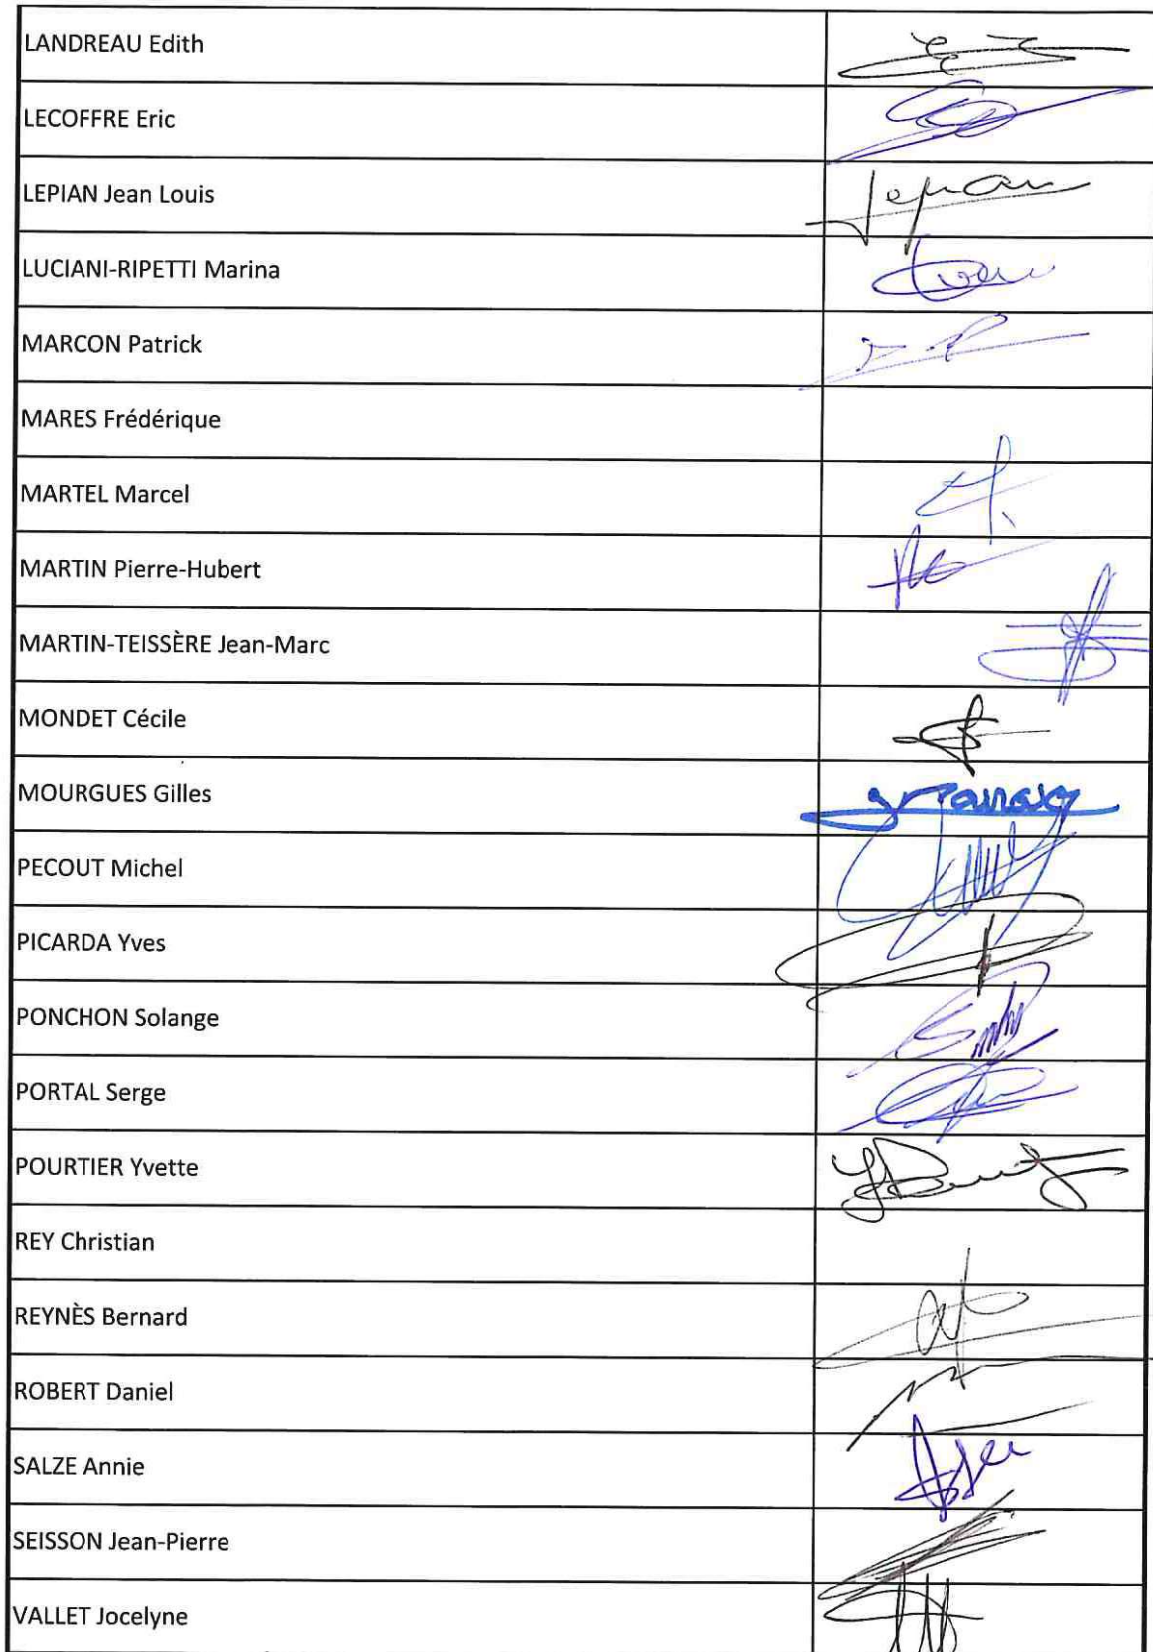 LANDREAU Edith
LECOFFRE Eric
LEPIAN Jean Louis
LUCIANI-RIPETTI Marina
MARCON Patrick
MARES Frédérique
MARTEL Marcel
MARTIN Pierre-Hubert
MARTIN-TEISSÈRE Jean-Marc
MONDET Cécile
MOURGUES Gilles
PECOUT Michel
PICARDA Yves
PONCHON Solange
PORTAL Serge
POURTIER Yvette
REY Christian
REYNÈS Bernard
ROBERT Daniel
SALZE Annie
SEISSON Jean-Pierre
VALLET Jocelyne